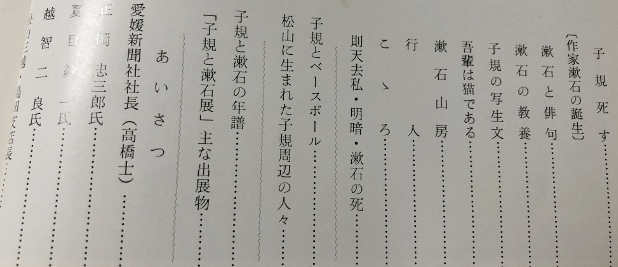 子規死す
〔作家漱石の誕生〕
漱石と俳句
漱石の教養
子規の写生文
吾輩は猫である
漱石山房
行人
こゝろ
則天去私・明暗・漱石の死
子規とベースボール
松山に生まれた子規周辺の人々
子規と漱石の年譜
「子規と漱石展」主な出展物
あいさつ
愛媛新聞社社長（高橋士）
正岡忠三郎氏
夏目純一氏
越智二良氏